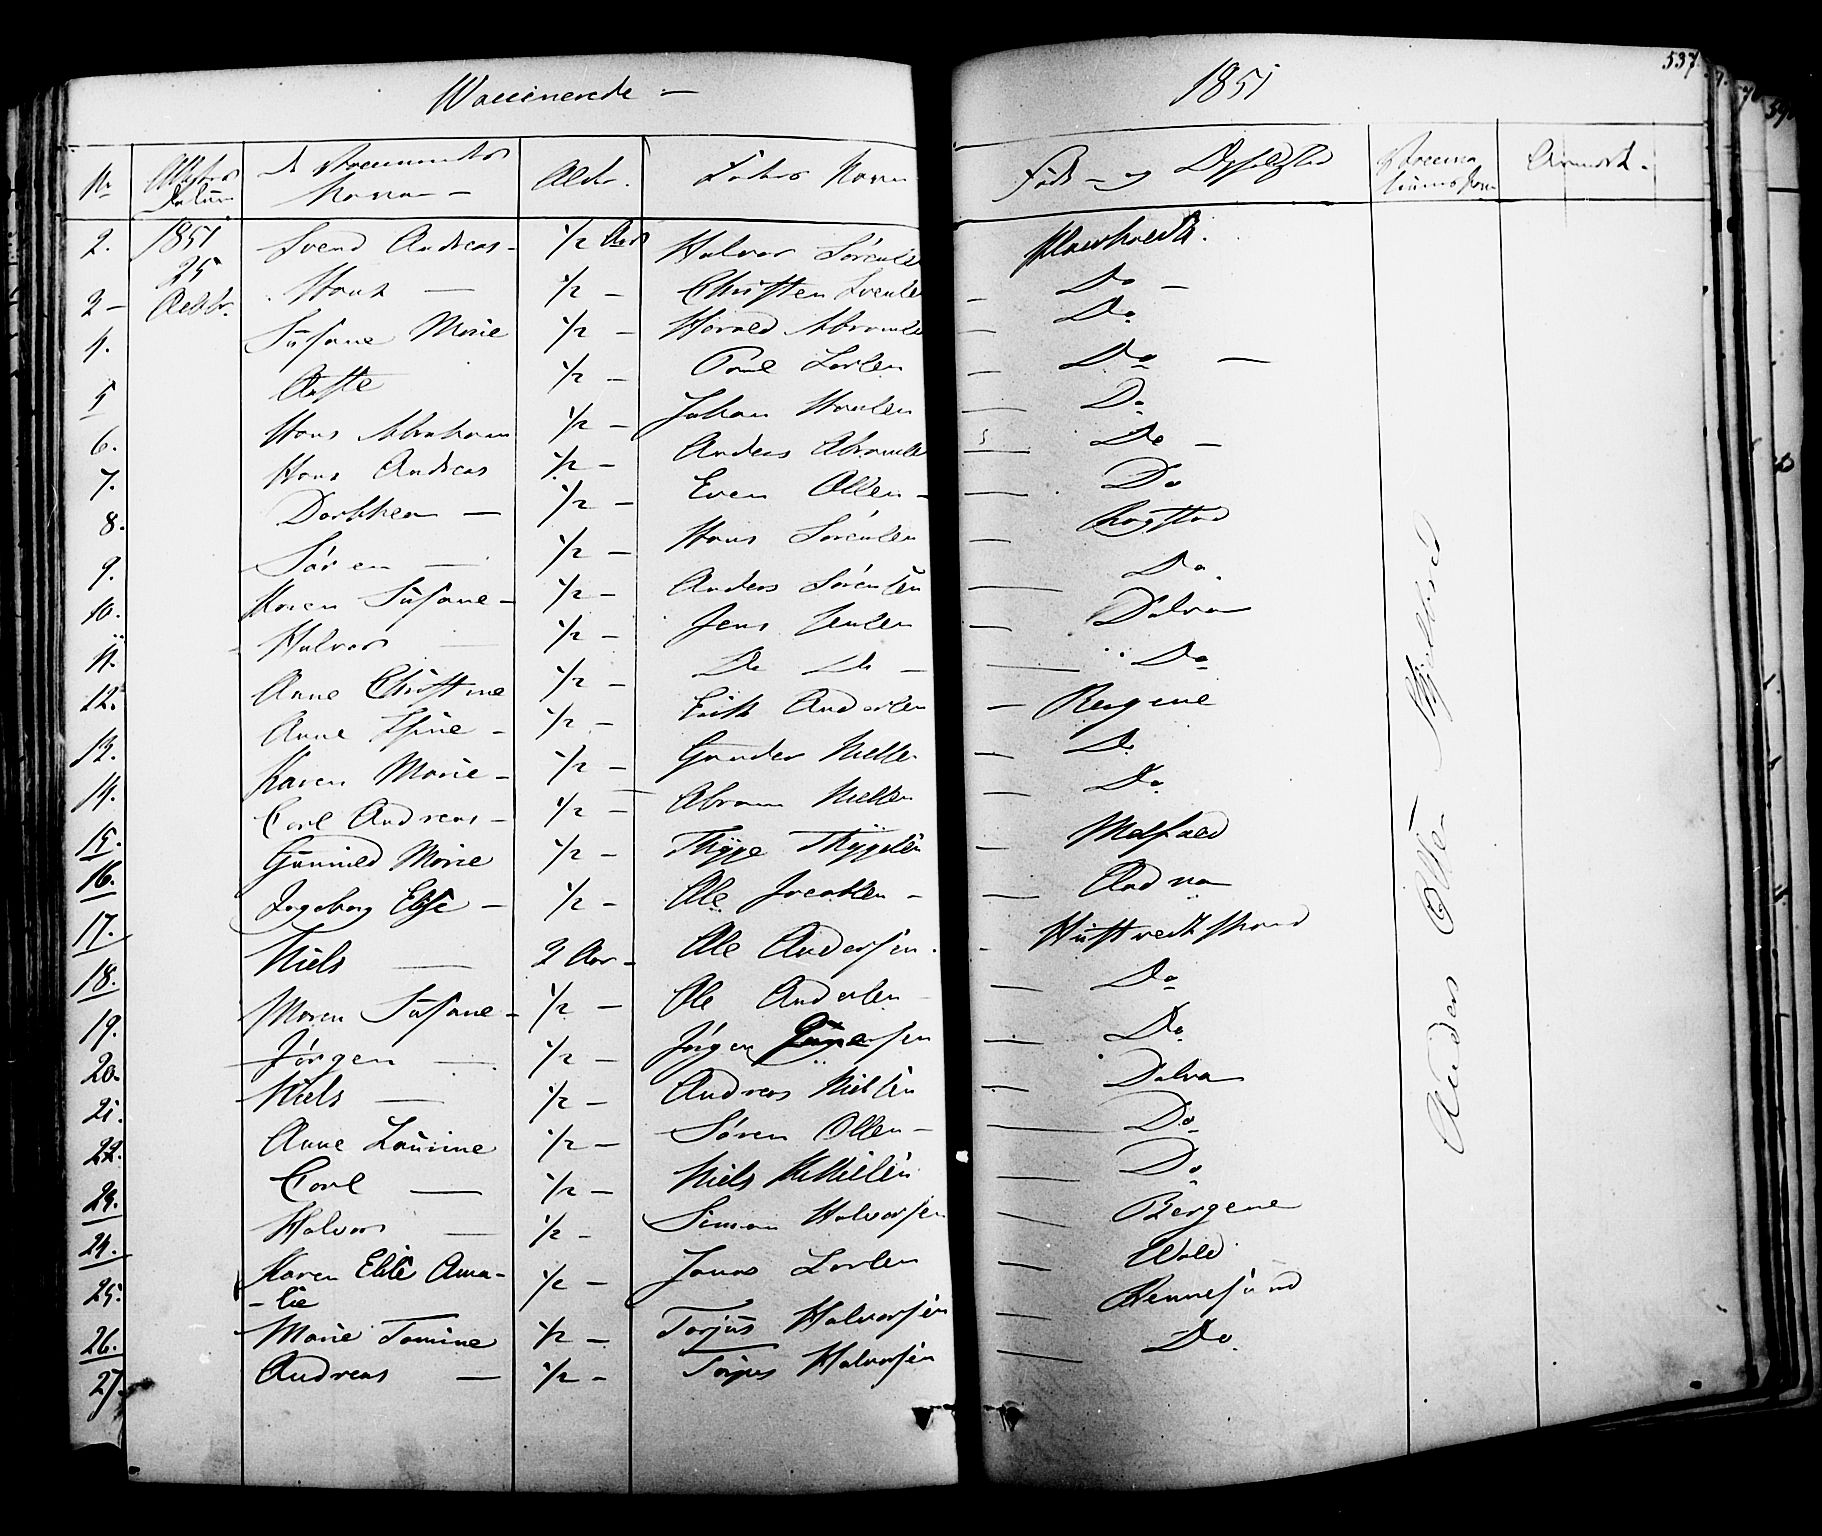 Vaccinerede — 1851 537.
No Attestens Datum de Vaccineredes Navne — Alder. Faders Navn Føde- og Opholdssted Vaccinationens Anmærk.
2. 1851 Svend Andreas — 1/2 Aar Halvor Sörensen
25 Hans — 1/2 — Christen Svensen — Do —
2 — Octbr. Susane Marie 1/2 — Harald Abramsen — Do
4. Aaste 1/2 — Poul Larsen — Do —
5 Hans Abraham 1/2 — Johan Hansen — Do
6. Hans Andreas 1/2 — Anders Abramsen — Do —
7. Dorthea — 1/2 — Even Olsen — Do
8. Sören — 1/2 — Hans Sörensen — Rogstad
9. Karen Susane — 1/2 — Anders Sörensen — Do.
10. Halvor — 1/2 — Jens Jensen — Dalva
11. Anne Christine 1/2 — Do Do — Do
12. Anne Thine — 1/2 — Erik Andersen — Bergene
13. Karen Marie — 1/2 — Gunder Nielsen — Do
14. Carl Andreas — 1/2 — Abram Nielsen — Do
15. Gunnild Marie 1/2 — Thygge Thyggesen
16. Ingeborg Elise — 1/2 — Ole Jacobsen —
17. Niels — 2 Aar — Ole Andersen.
18. Maren Susane — 1/2 — Ole Andersen — Do
19. Jörgen — 1/2 — Jörgen — Do
20. Niels — 1/2 — Andreas Nielsen — Dalva
21. Anne Laurine 1/2 — Sören Olsen — Do
22. Carl — 1/2 — Niels — Do
23. Halvor — 1/2 — Simon Halvorsen — Bergene
24. Karen Elise Ama- 1/2 — Jonas Larsen — Wold
25. -lie
26. Marie Tomine 1/2 — Torjus Halvorsen — Do.
27. Andreas — 1/2 — Torjus Halvorsen
Anders Olsen